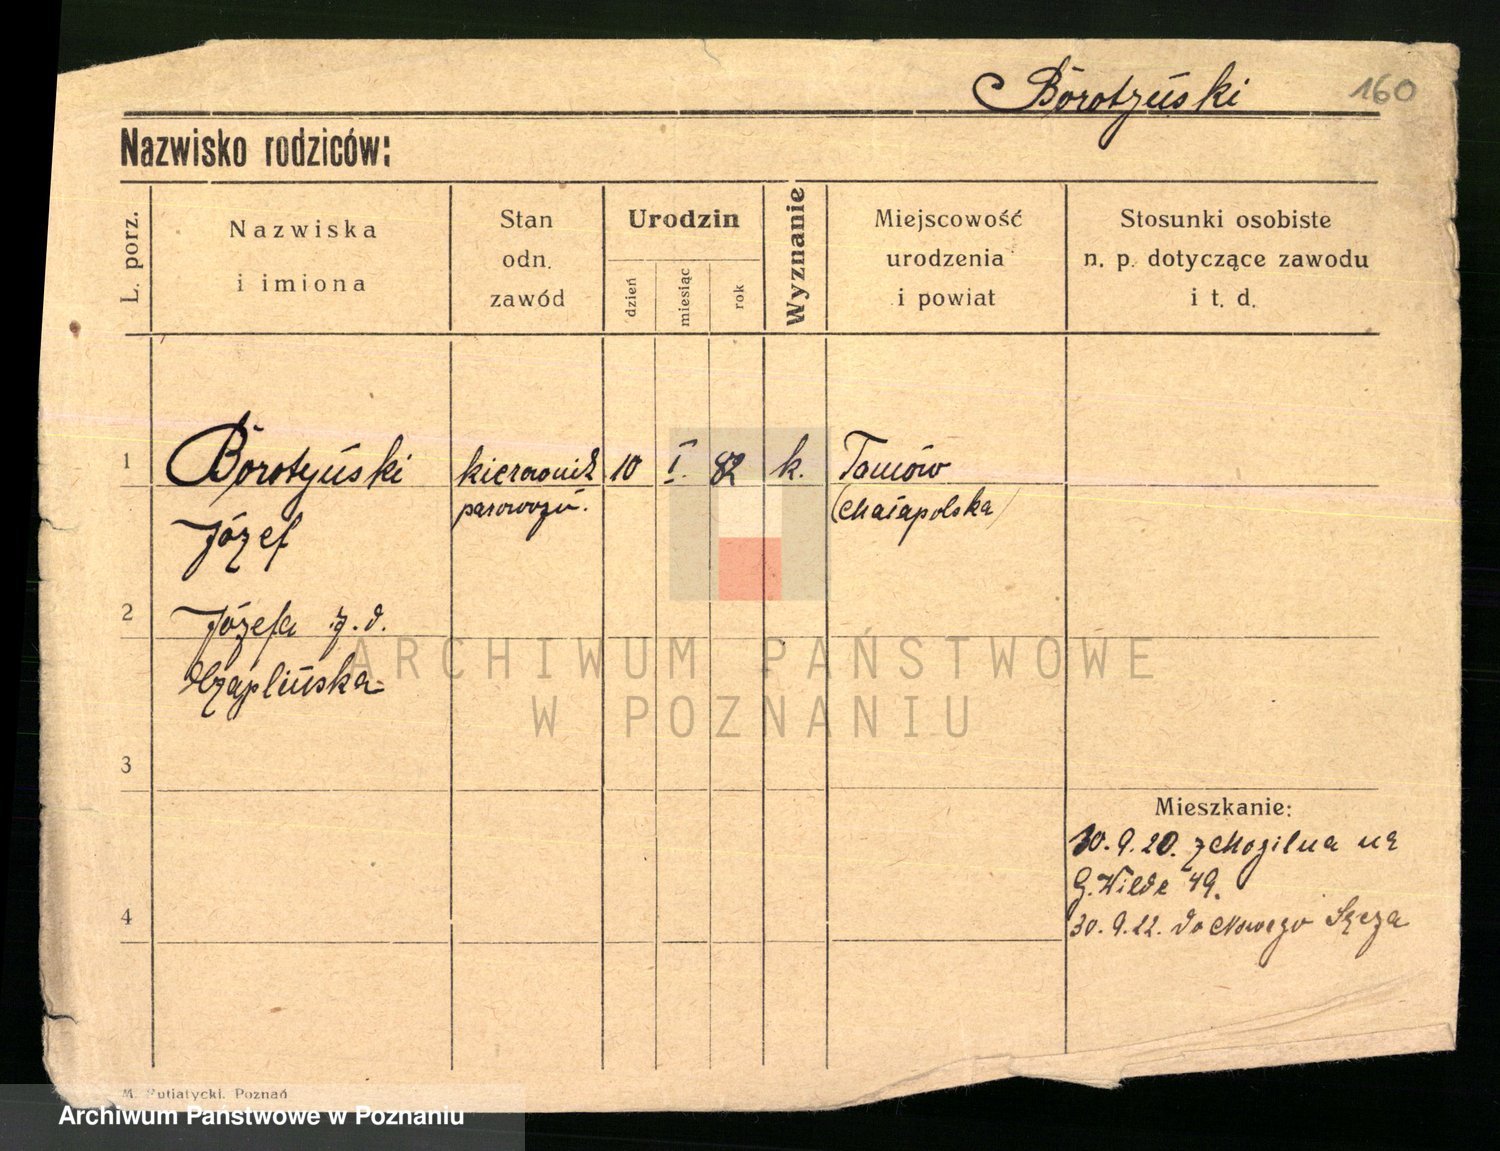 Borotyński 160
Nazwisko rodziców:
L. porz.
Nazwiska
i imiona
Stan
odn.
zawód
Urodzin
dzień
miesiąc
rok
Wyznanie
Miejscowość
urodzenia
i powiat
Stosunki osobiste
n. p. dotyczące zawodu
i t. d.
1 Borotyński kierownik 10 I. 82 k.
parowozu. (Małapolska)
Józef
2 Józefa z. d.
Czaplińska
ARCHIWUM PAŃSTWOWE
W POZNANIU
3
Mieszkanie:
30. 9. 20. z Mogilna na
G. Wilde 49.
4 30. 9. 22. do Nowego Sącza
M. Putiatycki, Poznań
Archiwum Państwowe w Poznaniu